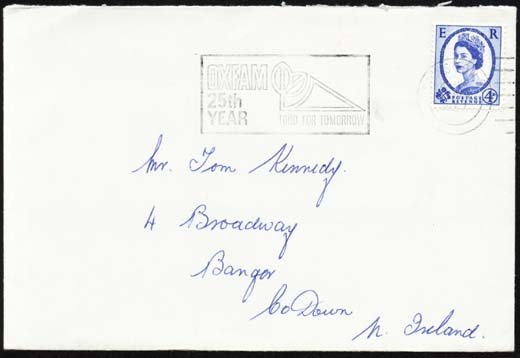 E R
POSTAGE
REVENUE
4D
OXFAM
25th
YEAR
FOOD FOR TOMORROW
Mr. Tom Kennedy.
4 Broadway
Bangor
Co Down
N. Ireland.